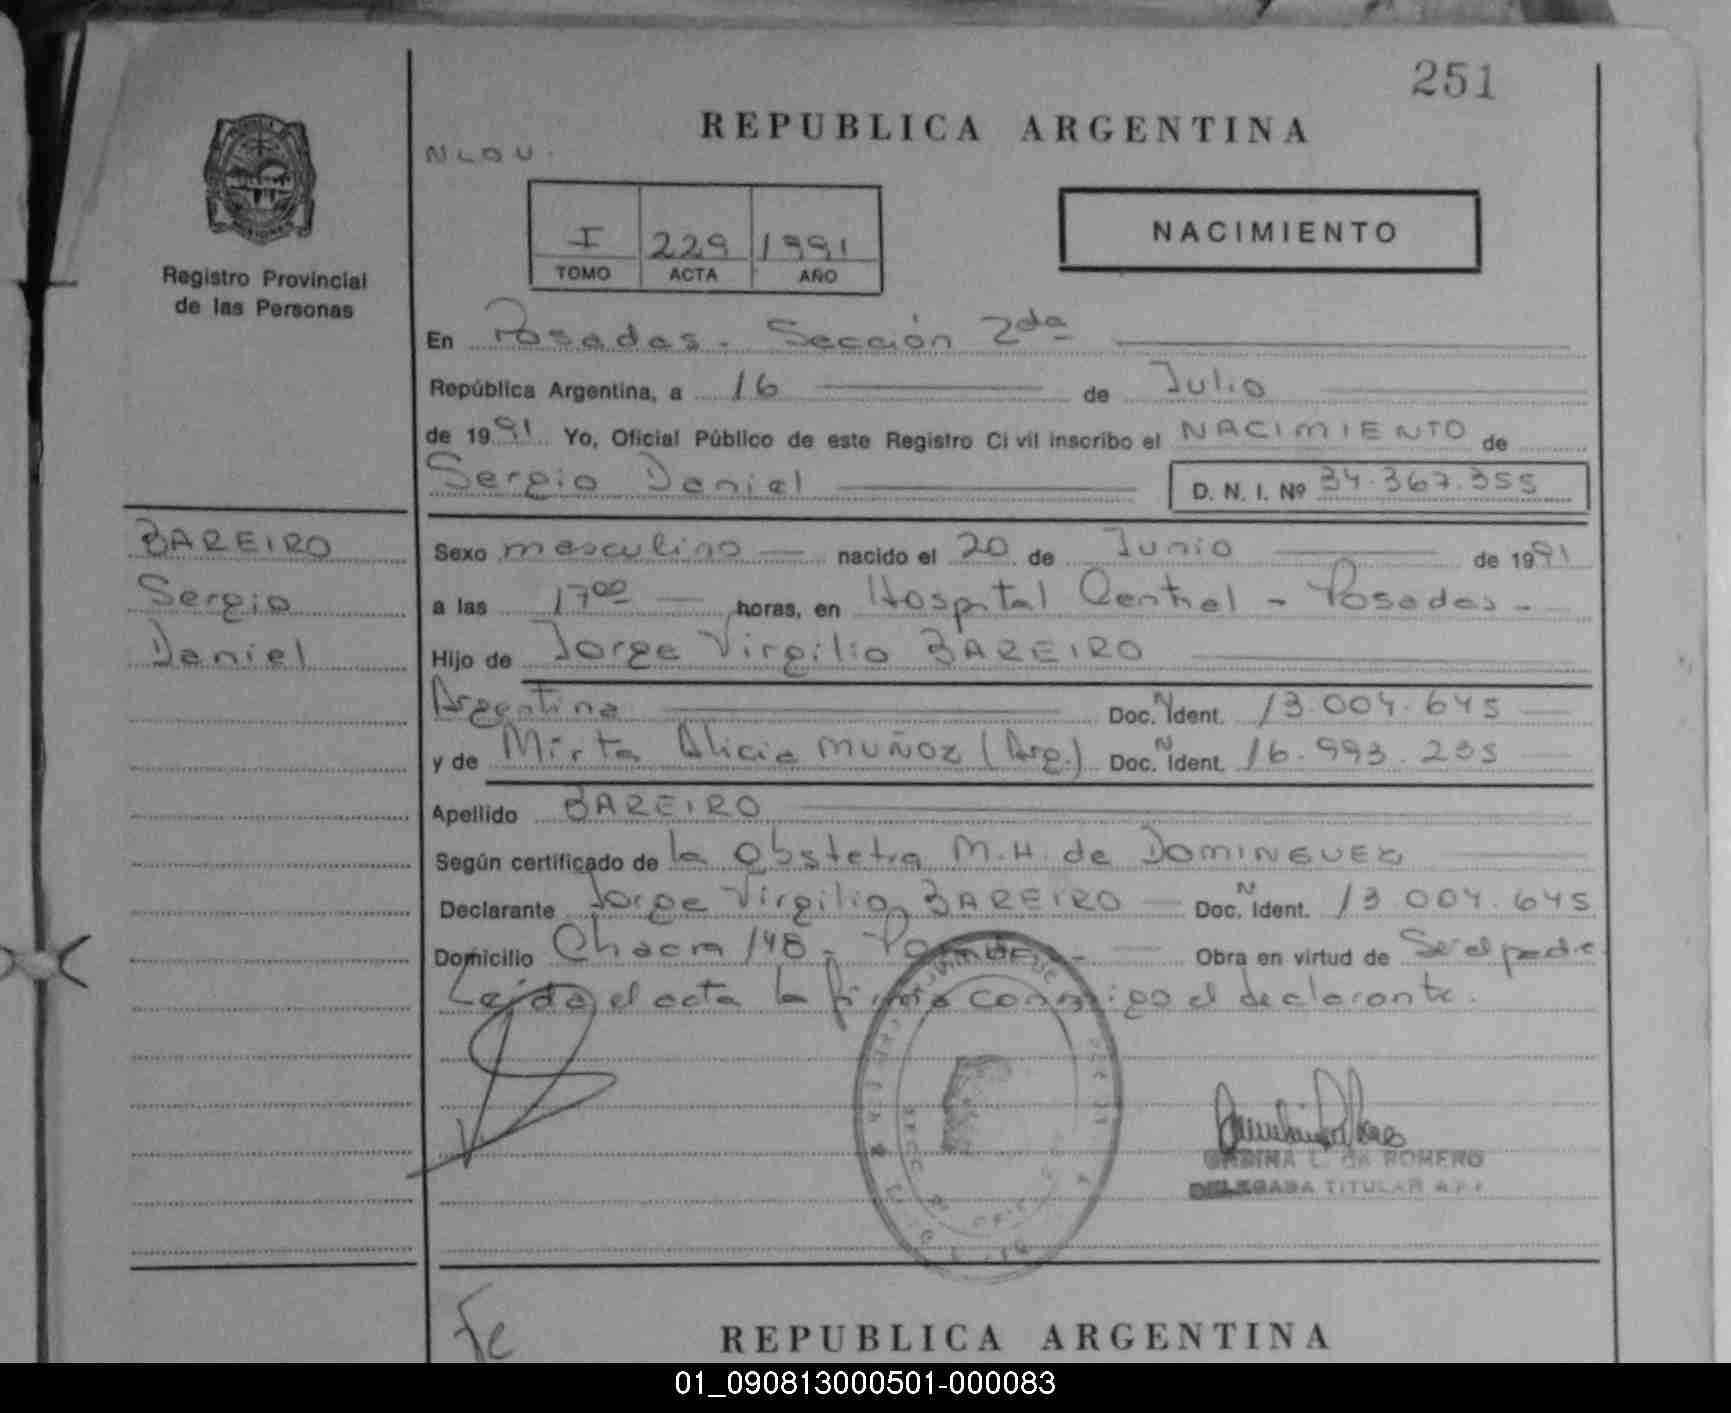 251
REPUBLICA ARGENTINA
NACIMIENTO
I 229 1991
TOMO ACTA AÑO
Registro Provincial
de las Personas
En Posadas - Sección 2da
República Argentina, a 16 de Julio
de 1991 Yo, Oficial Público de este Registro Civil inscribo el NACIMIENTO de
Sergio Daniel D. N. I. Nº 34.367.355
BAREIRO
Sergio
Daniel
Sexo masculino nacido el 20 de Junio de 1991
a las 17 00 horas, en Hospital Central - Posadas -
Hijo de Jorge Virgilio BAREIRO
Argentina Doc. N Ident. 13.004.645
y de Mirta Alicia MUÑOZ (Arg.) Doc. N Ident. 16.993.235
Apellido BAREIRO
Según certificado de la Obstetra M.H. de DOMINGUEZ
Declarante Jorge Virgilio BAREIRO Doc. N Ident. 13.004.645
Domicilio Chacra 148 - Posadas - Obra en virtud de Ser el padre
Leida el acta la firma conmigo el declarante.
L. de ROMERO
DELEGADA TITULAR
REPUBLICA ARGENTINA
01_090813000501-000083